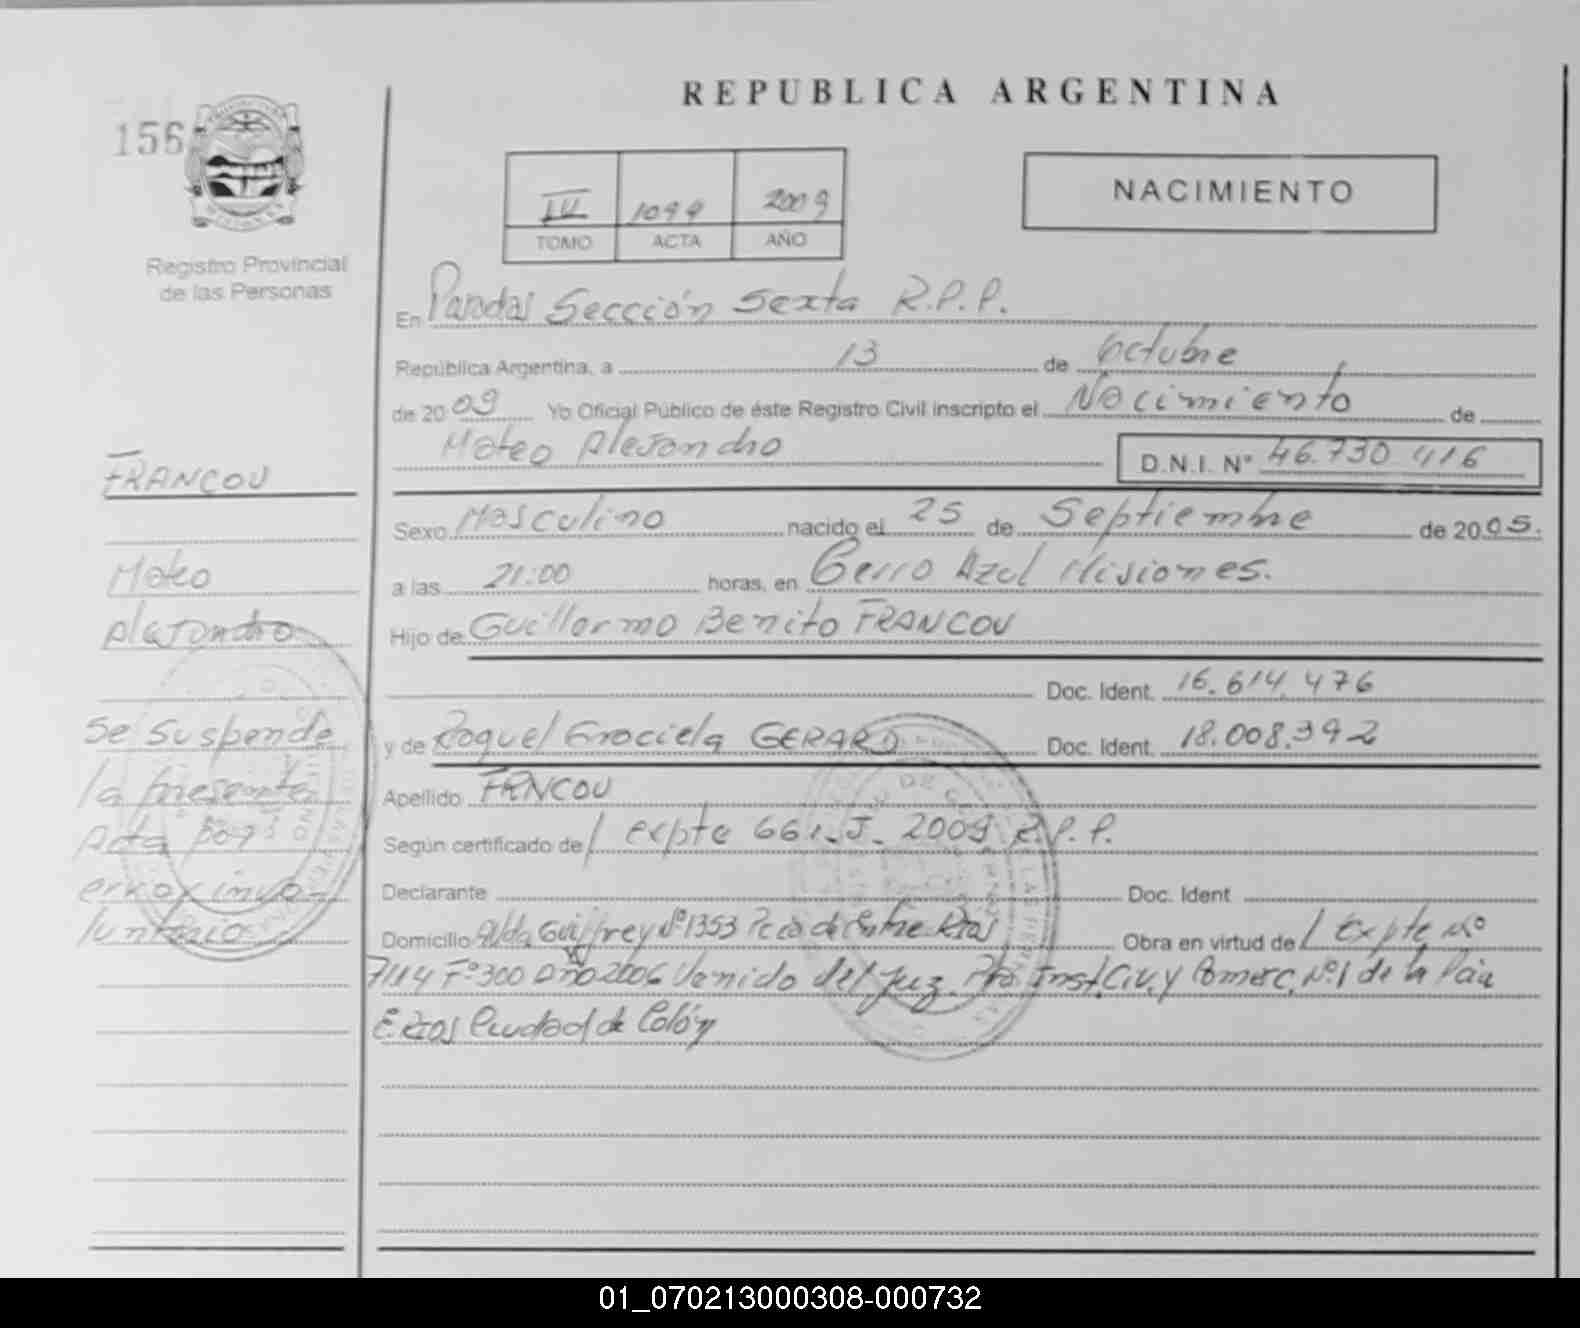 REPUBLICA ARGENTINA
156
NACIMIENTO
IV 1099 2009
TOMO ACTA AÑO
Registro Provincial
de las Personas
En Posadas Sección Sexta R.P.P.
República Argentina, a 13 de Octubre
de 2009 Yo Oficial Público de éste Registro Civil inscripto el Nacimiento de
Mateo Alejandro D.N.I. Nº 46.730 416
FRANCOU
Sexo Masculino nacido el 25 de Septiembre de 2005.
Mateo
a las 21:00 horas, en Cerro Azul Misiones.
Alejandro
Hijo de Guillermo Benito FRANCOU
Doc. Ident. 16.614.476
Se suspende
y de Raquel Graciela GERARD Doc. Ident. 18.008.392
la presente
Apellido FRNCOU
Acta por
Según certificado de / expte 661-J- 2009 R.P.P.
error invo-
Declarante Doc. Ident
luntario
Domicilio Nº 1353 de Entre Ríos Obra en virtud de / Expte Nº
7114 Fº 300 Año 2006 Venido del Juz. Inst. Civ. y Comerc. Nº 1 de la
E. Ríos Ciudad de Colón
01_070213000308-000732